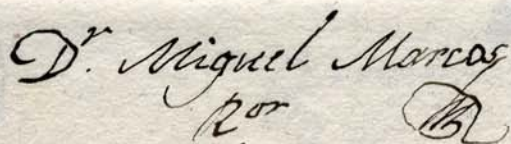 Dr. Miguel Marcos
Ror